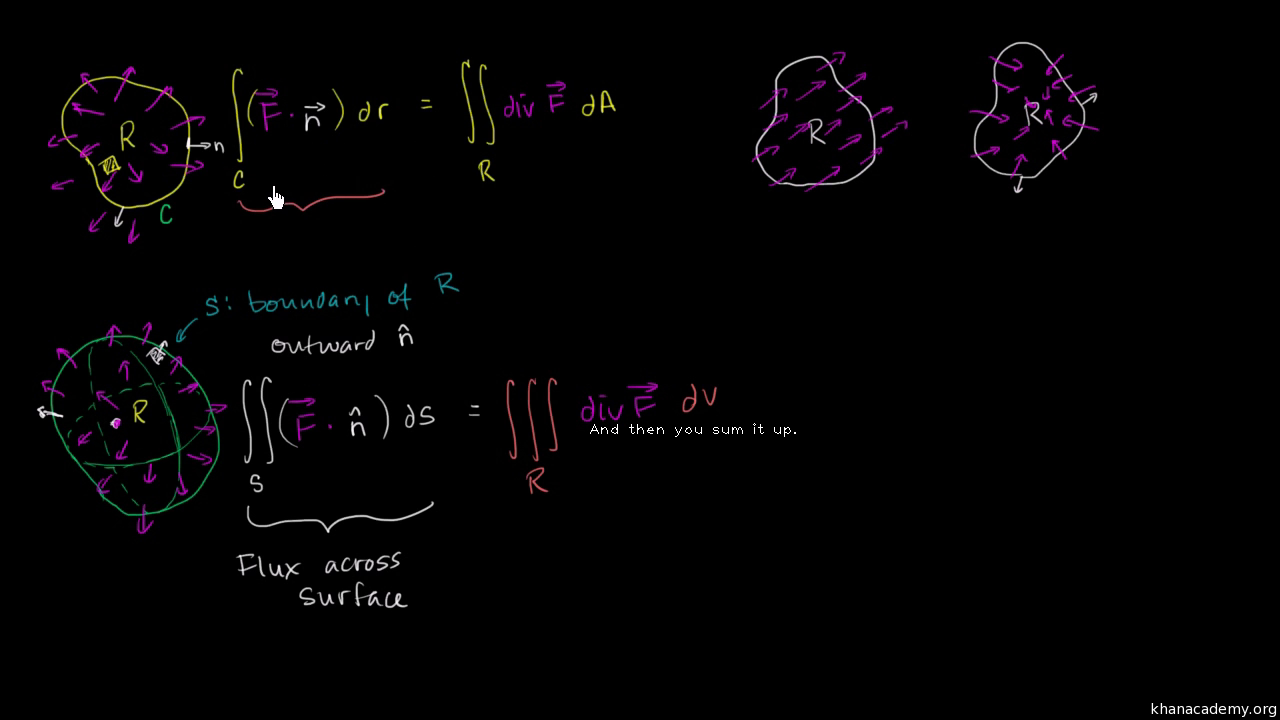 R
n
C
∫_C (F⃗ · n⃗) dr = ∬_R div F⃗ dA
R
R
S: boundary of R
outward n̂
R
∬_S (F⃗ · n̂) dS = ∭_R div F⃗ dV
And then you sum it up.
Flux across
surface
khanacademy.org